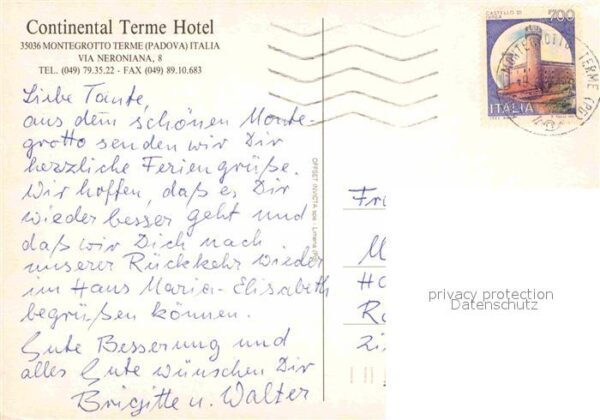 Continental Terme Hotel
35036 MONTEGROTTO TERME (PADOVA) ITALIA
VIA NERONIANA, 8
TEL. (049) 79.35.22 - FAX (049) 89.10.683
Liebe Tante,
aus dem schönen Monte-
grotto senden wir Dir
herzliche Feriengrüße.
Wir hoffen, daß es Dir
wieder besser geht und
daß wir Dich nach
unserer Rückkehr wieder
im Haus Maria-Elisabeth
begrüßen können.
Gute Besserung und
alles Gute wünschen Dir
Brigitte u. Walter
OFFSET INVICTA
CASTELLO DI
700
ITALIA
MONTEGROTTO TERME (PD)
Fr
M
Ha
Ra
Zi
privacy protection
Datenschutz